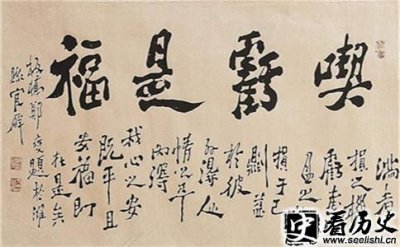 喫虧是福
滿者
損之機
虧者
盈之
損于己
則益
於彼
外得人
情之平
內得
我心之安
既平且
安福即
在是矣
板橋鄭燮題於濰
縣官廨
看历史
www.seelishi.cn